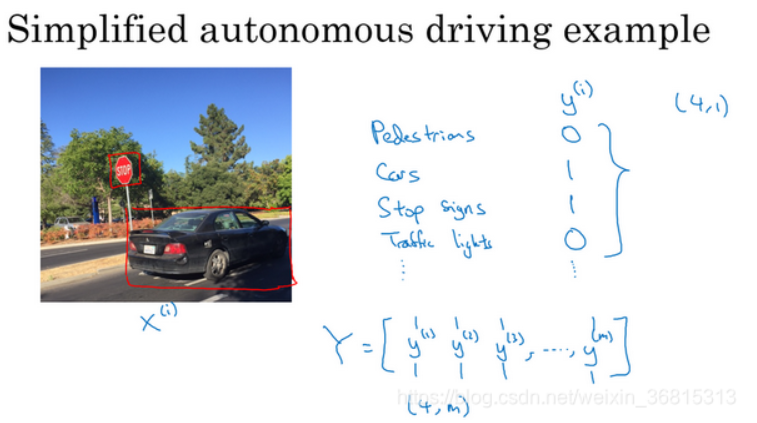 Simplified autonomous driving example
y^(i) (4,1)
Pedestrians 0
Cars 1
Stop signs 1
Traffic lights 0
⋮ ⋮
STOP
x^(i)
Y = [ y^(1) y^(2) y^(3), ....., y^(m) ]
(4,m)
https://blog.csdn.net/weixin_36815313